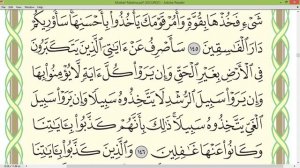 شَىْءٍ فَخُذْهَا بِقُوَّةٍ وَأْمُرْ قَوْمَكَ يَأْخُذُوا۟ بِأَحْسَنِهَا سَأُو۟رِيكُمْ
دَارَ ٱلْفَـٰسِقِينَ ١٤٥ سَأَصْرِفُ عَنْ ءَايَـٰتِىَ ٱلَّذِينَ يَتَكَبَّرُونَ
فِى ٱلْأَرْضِ بِغَيْرِ ٱلْحَقِّ وَإِن يَرَوْا۟ كُلَّ ءَايَةٍ لَّا يُؤْمِنُوا۟ بِهَا
وَإِن يَرَوْا۟ سَبِيلَ ٱلرُّشْدِ لَا يَتَّخِذُوهُ سَبِيلًا وَإِن يَرَوْا۟ سَبِيلَ
ٱلْغَىِّ يَتَّخِذُوهُ سَبِيلًا ذَٰلِكَ بِأَنَّهُمْ كَذَّبُوا۟ بِـَٔايَـٰتِنَا
وَكَانُوا۟ عَنْهَا غَـٰفِلِينَ ١٤٦ وَٱلَّذِينَ كَذَّبُوا۟ بِـَٔايَـٰتِنَا